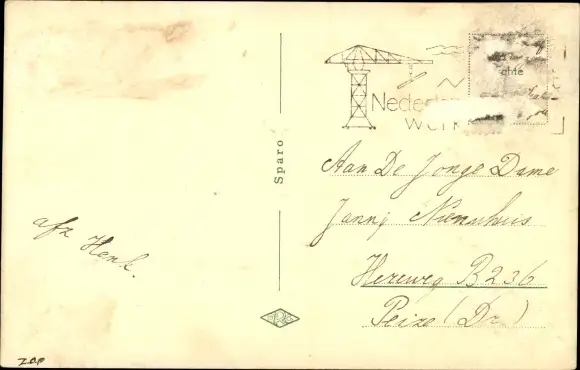 Nederl
werk
chte
Sparo
Aan De Jonge Dame
Janny Nienhuis
Hereweg B236
Peize (Dr)
afz Henk.